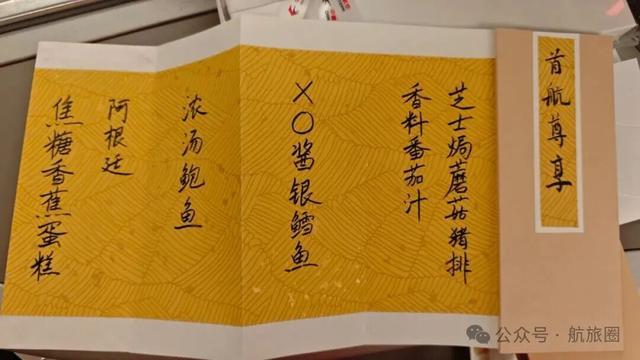 首航尊享
芝士焗蘑菇猪排
香料番茄汁
XO酱银鳕鱼
浓汤鲍鱼
阿根廷
焦糖香蕉蛋糕
公众号·航旅圈